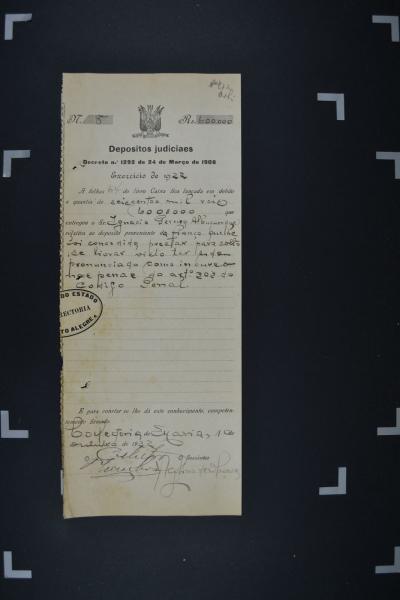 N. 8 Rs. 600.000
Depositos judiciaes
Decreto n.º 1292 de 24 de Março de 1908
Exercicio de 1922
A folhas do livro Caixa fica lançada em debito
a quantia de seiscentos mil reis
(600$000) que
entregou o Sr. Ignacio
relativa ao deposito proveniente da fiança que lhe
foi concedida prestar para solto
se livrar visto ter sido
pronunciado como incurso
nas penas do artº 303 do
Codigo Penal
DO ESTADO
RECTORIA
TO ALEGRE
E para constar se lhe dá este conhecimento, competen-
temente firmado.
Collectoria de 1 de
de 1922
O Collector
O Escrivão